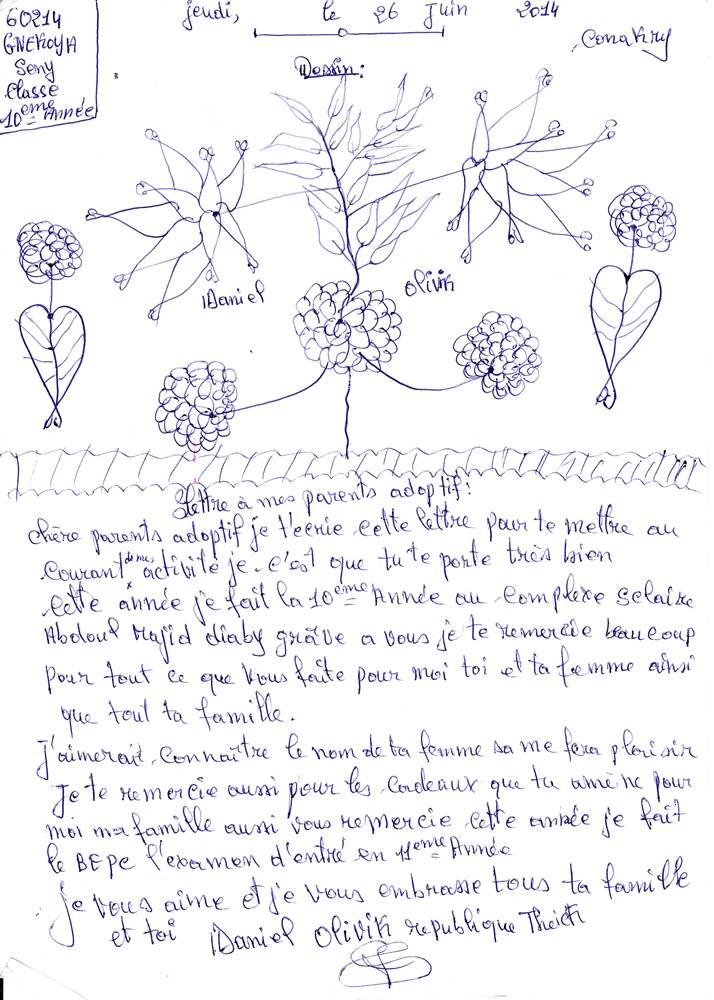 60214
GNEKOYA
Seny
Classe
10eme Année
jeudi, le 26 Juin 2014
Conakry
Dessin:
Daniel
Olivik
lettre à mes parents adoptif:
chère parents adoptif je t'ecrie cette lettre pour te mettre au
courant de mes activité je. c'est que tu te porte très bien
cette année je fait la 10eme Année au complexe sclaire
Abdoul Majid diaby grâve a vous je te remercie beaucoup
pour tout ce que vous faite pour moi toi et ta femme ainsi
que tout ta famille.
j'aimerait connaître le nom de ta femme sa me fera plaisir
je te remercie aussi pour les cadeaux que tu amène pour
moi ma famille aussi vous remercie cette année je fait
le BEPC l'examen d'entré en 11eme Année
je vous aime et je vous embrasse tous ta famille
et toi Daniel Olivik republique Theick